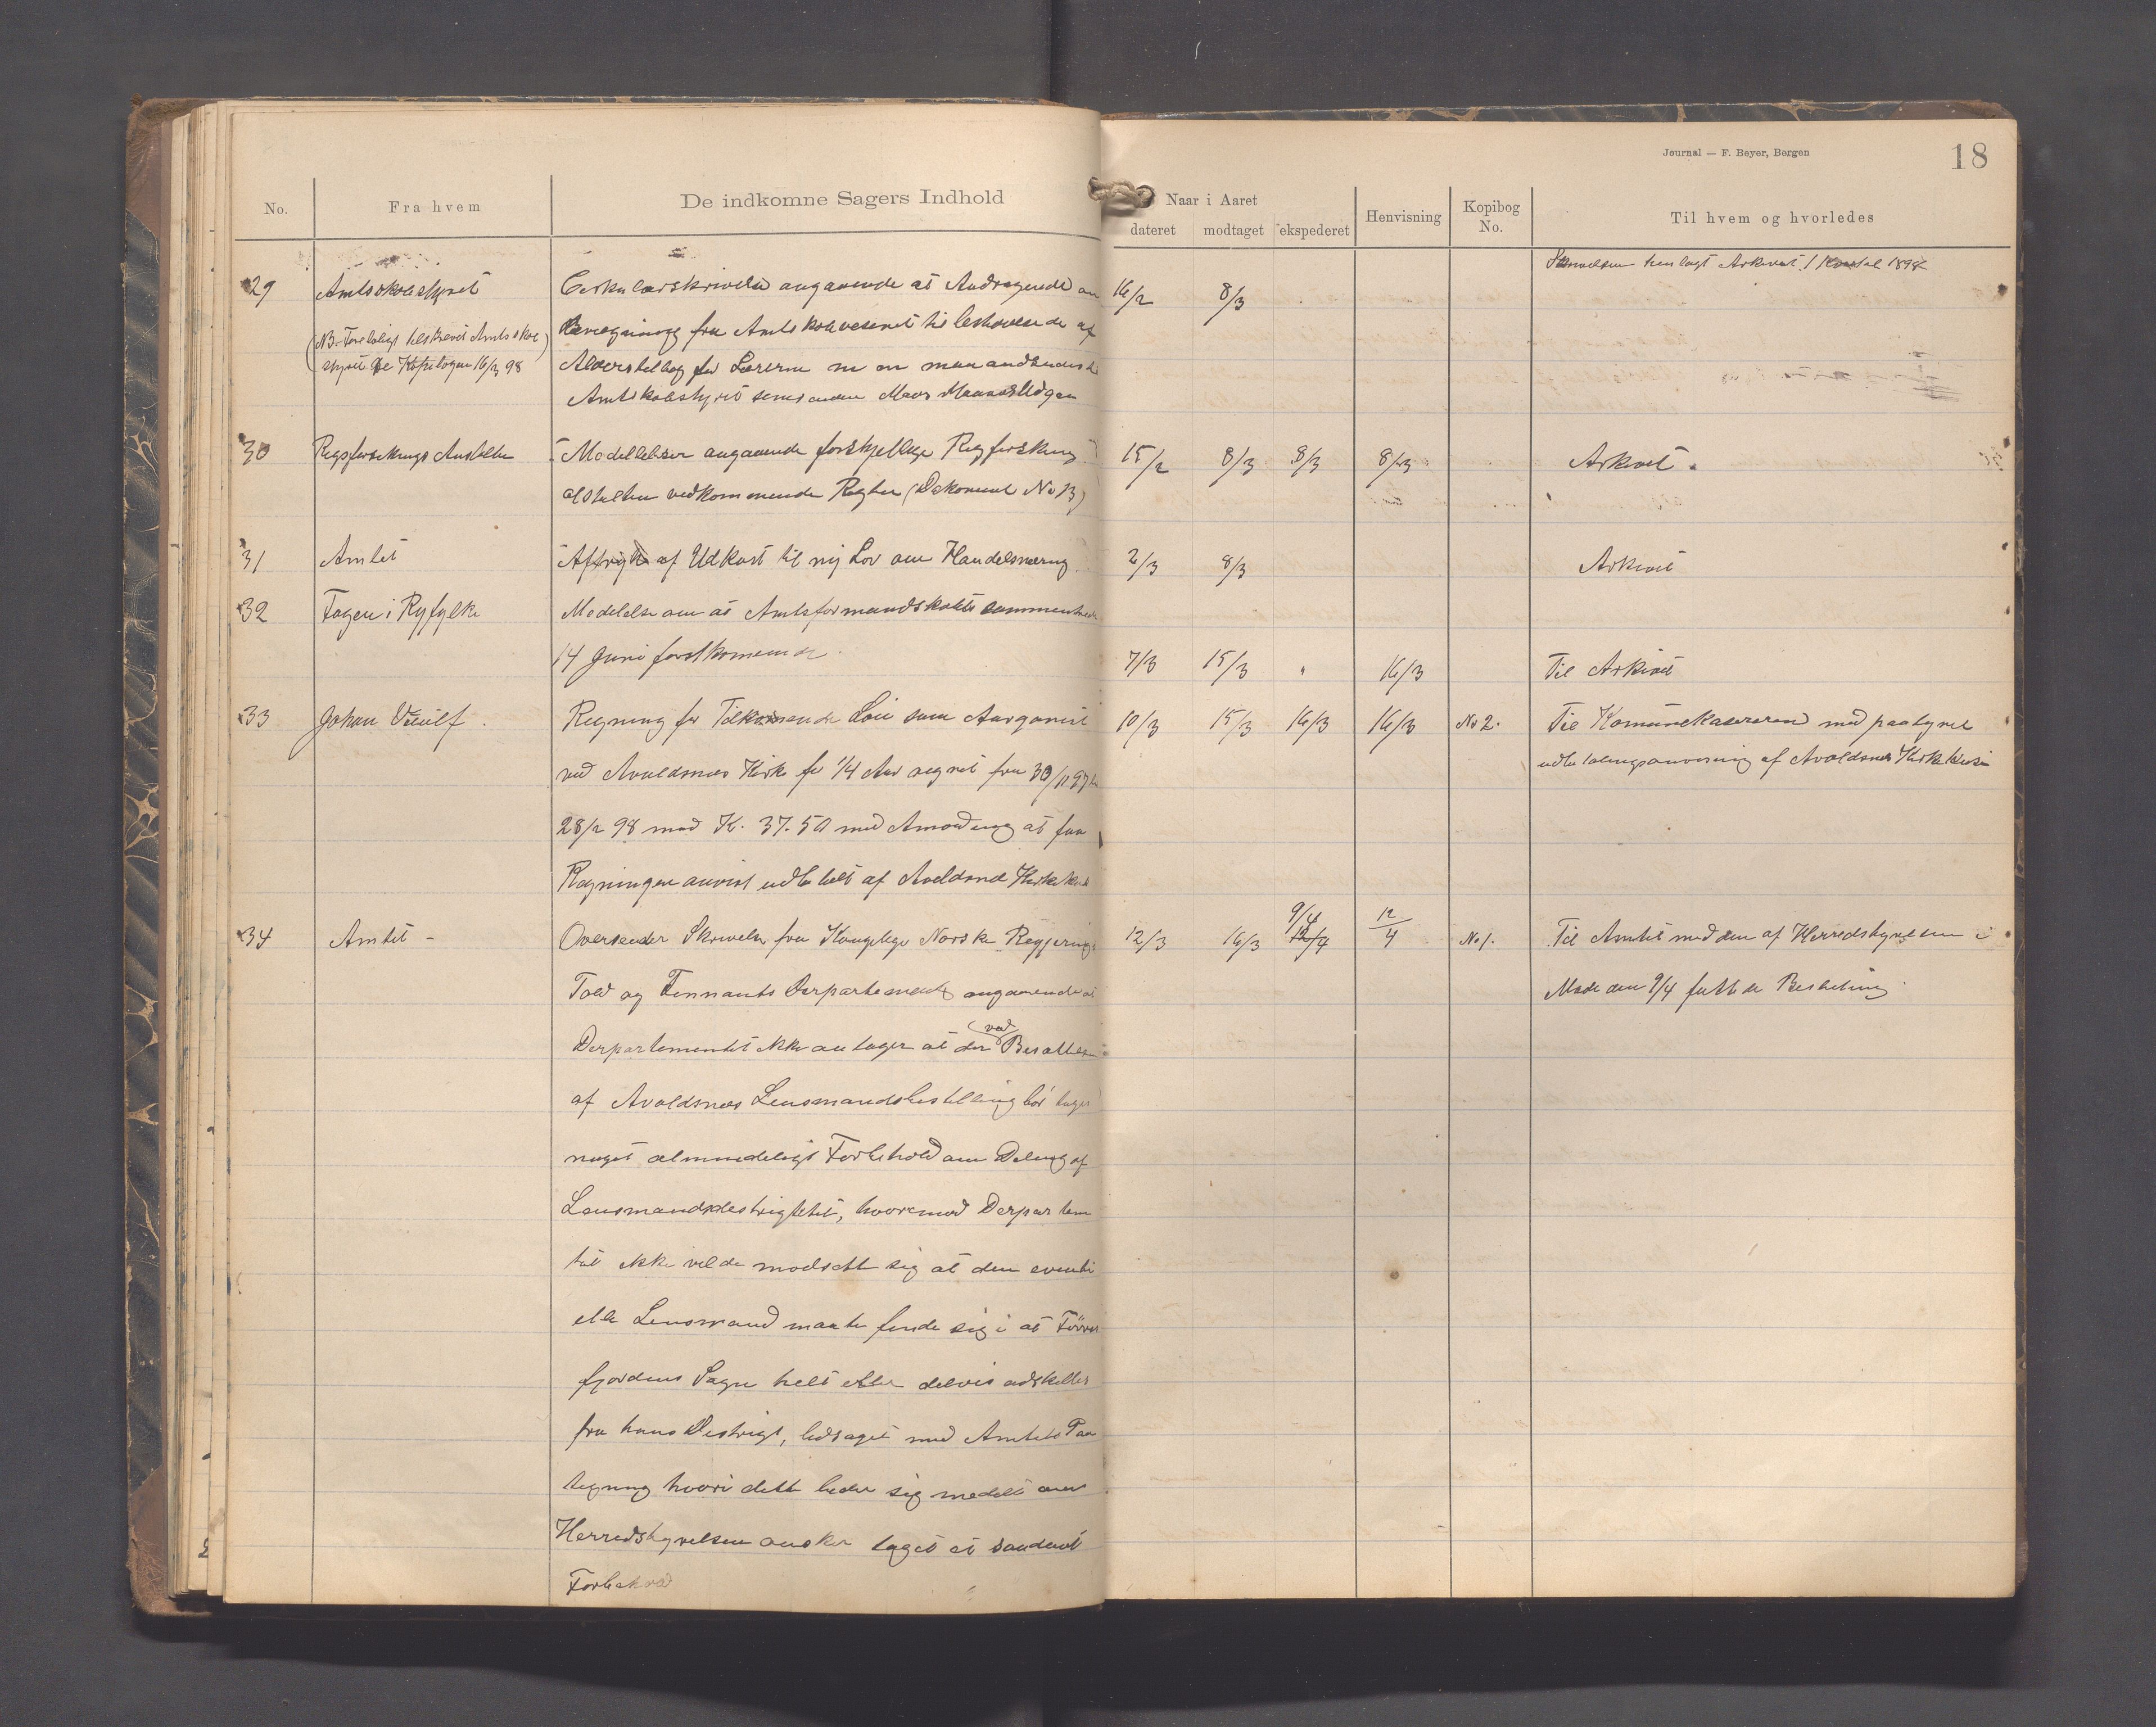 Journal — F. Beyer, Bergen
18
No.
Fra hvem
De indkomne Sagers Indhold
Naar i Aaret
dateret
modtaget
ekspederet
Henvisning
Kopibog
No.
Til hvem og hvorledes
29
Amtsskolestyret
(NB. Foreløbigt tilskrevet Amtsskole
styret Se Kopibogen 16/3 98
Cirkulærskrivelse angaaende at Andragende om
Bevægning fra Amtskolevesenet til bestridelse af
Alderstillæg for Lærerne
Amtskolestyret senest inden Mars Maaneds Udgan
16/2
8/3
henlagt Arkivet 1898
30
Regsforsikrings Anstalten
Meddelelser angaaende forskjellige Rigsforsikring
alstalten vedkommende Regler (Dokument No 13)
15/2
8/3
8/3
8/3
Arkivet.
31
Amtet
Aftryk af Udkast til ny Lov om Handelsnæring
2/3
8/3
Arkivet
32
Fogen i Ryfylke
Medelelse om at Amtsformandskabet sammentræde
14 Juni førstkomende.
7/3
15/3
"
16/3
Til Arkivet
33
Johan
Regning for Tilkommende Løn som Aarganist
ved Avaldsnes Kirke for 1/4 Aar regnet fra 30/11 97 til
28/2 98 med K. 37.50 med Amodning at faa
Regningen anvist udbetalt af Avaldsnes Kirkekasse
10/3
15/3
16/3
16/3
No 2.
Til Komunekasereren med paategnet
udbetalingsanvisning af Avaldsnes Kirke
34
Amtet -
Oversender Skrivelse fra Kongelige Norske Regjerings
Told og Finnants Derpartement angaaende at
Derpartementet ikke antager at der ved Besættelsen
af Avaldsnes Lensmandsbestilling bør tages
noget almindeligt Forbehold om Deling af
Lensmandsdestrigtetet, hvorimod Derpartem
tet ikke vilde modsette sig at den eventu
elle Lensmand maate finde sig i at Førres
fjordens Sogn helt eller delvis adskilles
fra hans Destrigt, ledsaget med Amtets Paa
tegning hvori dette beder sig medelt om
Herredstyrelsen ønsker taget et saadant
Forbehold
12/3
16/3
9/4
12/4
12/4
No 1.
Til Amtet med den af Herredstyrelsen i
Møde den 9/4 fattede Beslutning